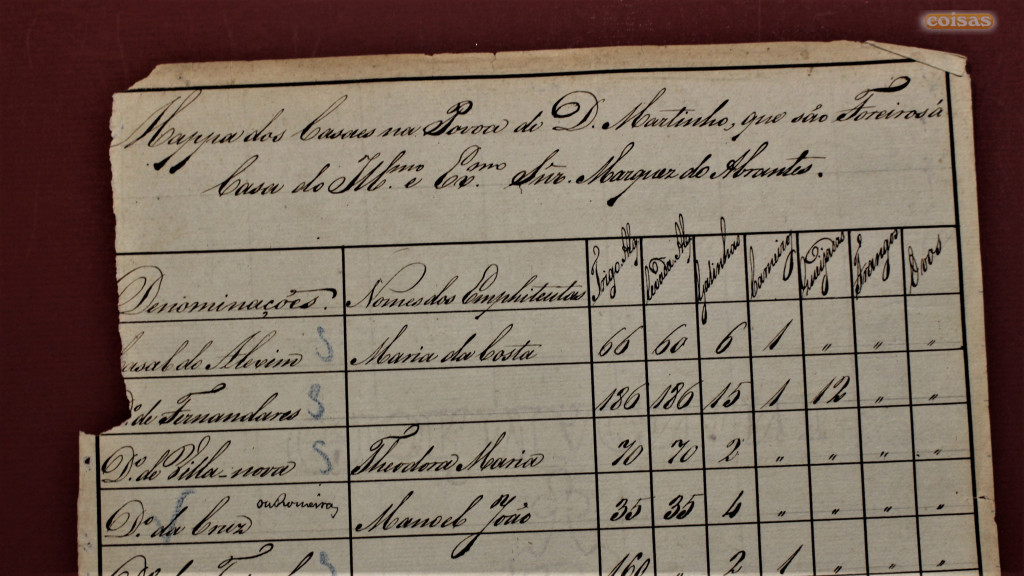 coisas
Mappa dos Casaes na Povoa de D. Martinho, que são Foreiros á
Casa do Ill.mo e Ex.mo Snr. Marquez de Abrantes.
Denominações. Nomes dos Emphiteutas Trigo Alq Galinhas Carneiro Frangos Ovos
Casal do Alovim S Maria da Costa 66 60 6 1 " " "
D.o de Fernandares S 136 136 15 1 12 " "
D.o de Villa-nova S Theodora Maria 70 70 2 " " " "
D.o da Cruz Manoel João 35 35 4 " " " "
160 " 2 1 " " "